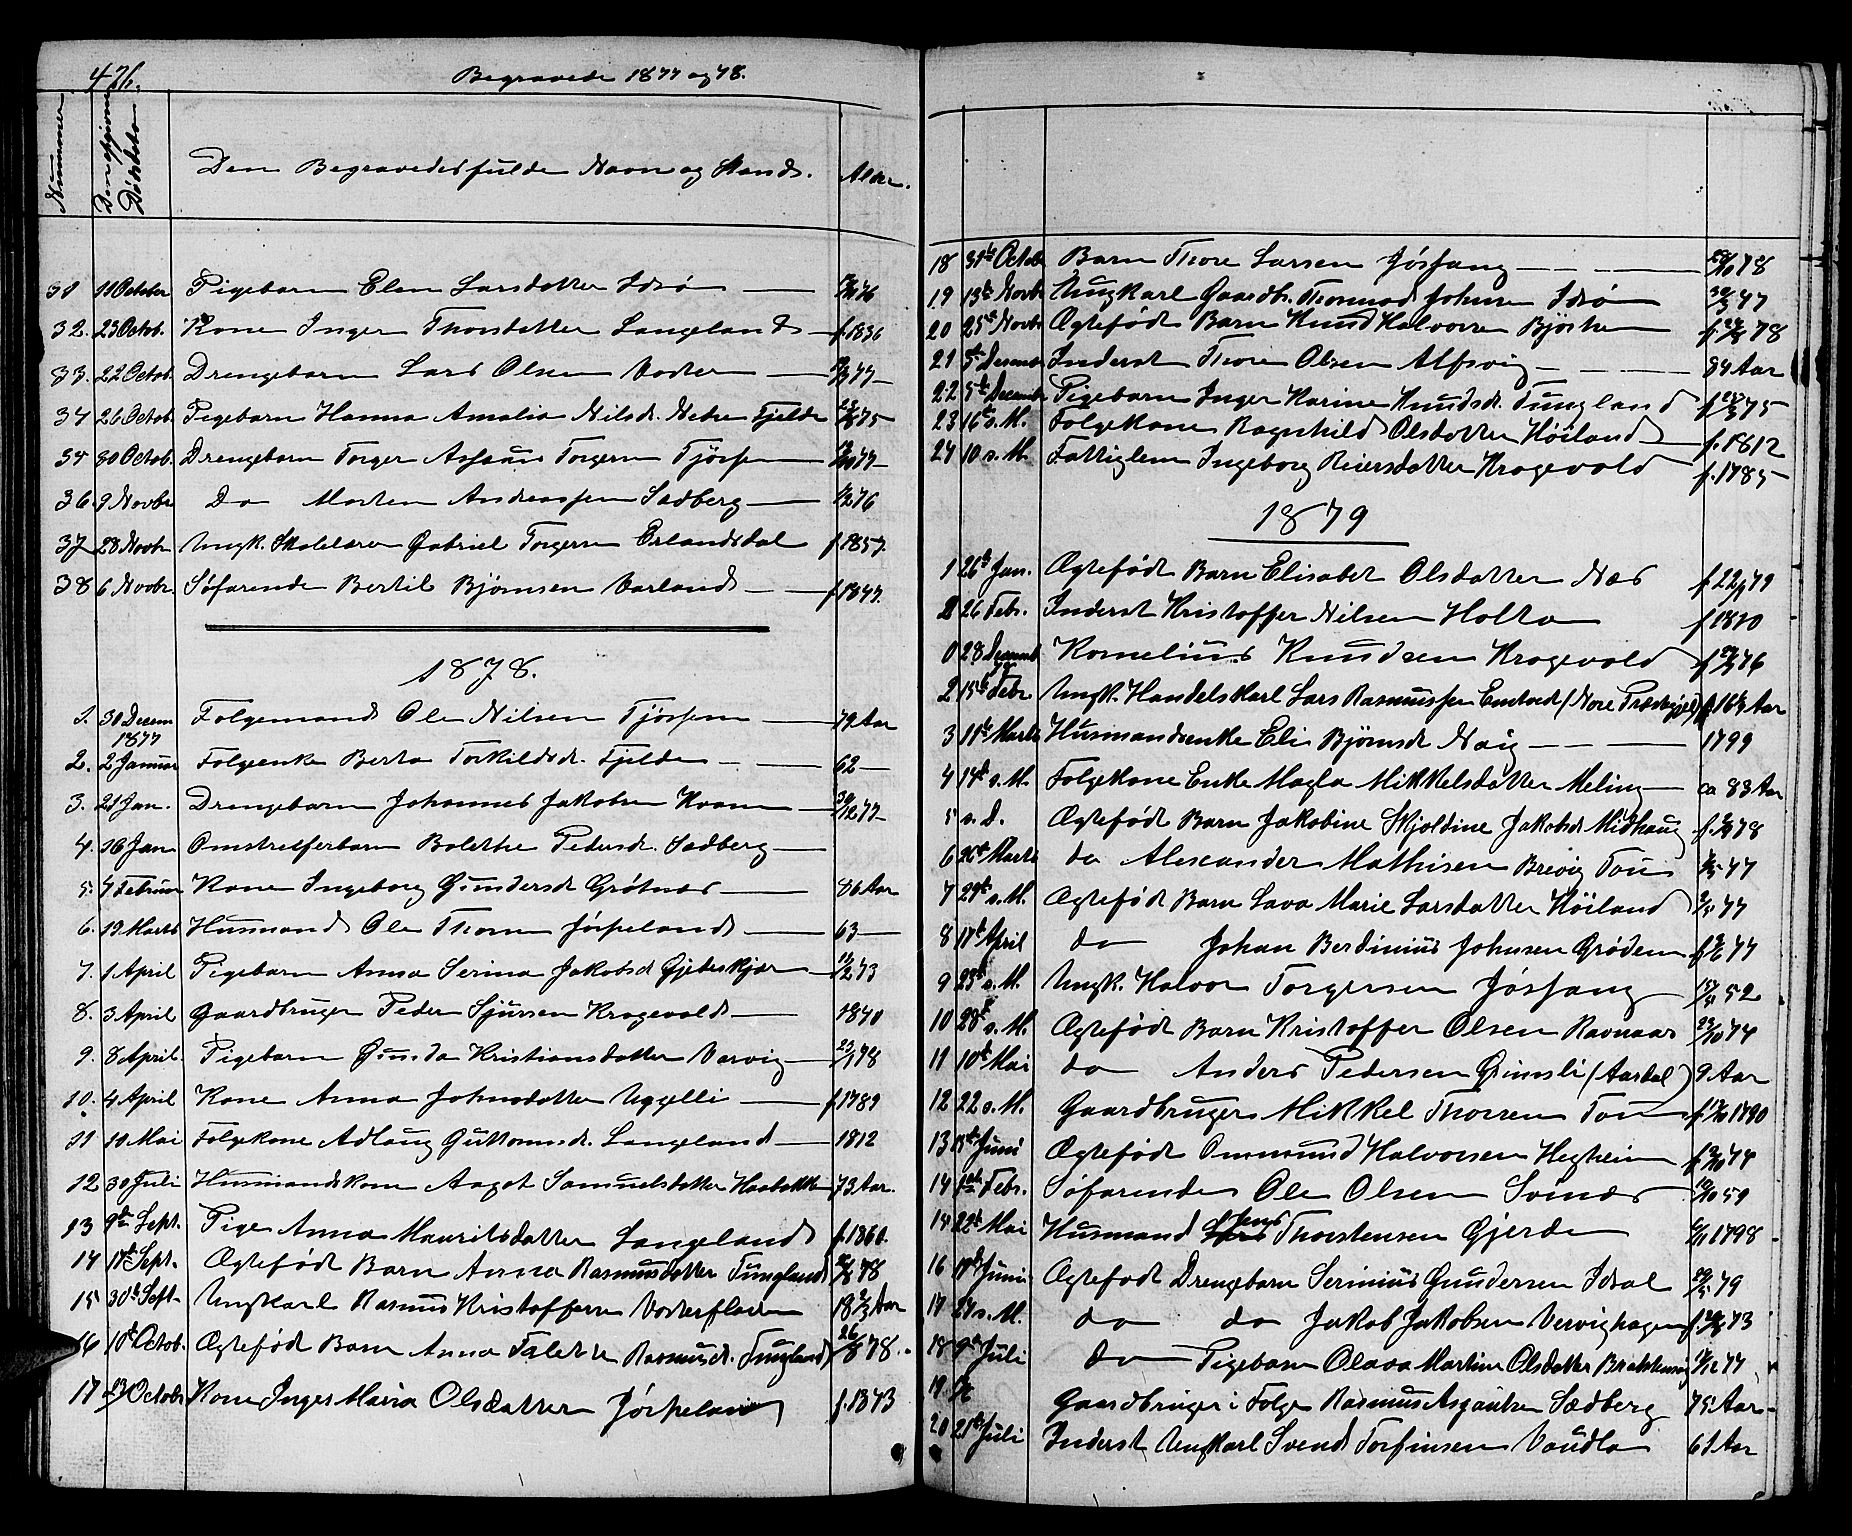 476.
Begravede 1877 og 78.
Nummer
Den opgivne Dødsdato
Den Begravedes fulde Navn og Stand.
Alder.
31 11 October Pigebarn Elen Larsdatter Idsø 76
32. 23 Octob. Kone Inger Thorsdatter Langeland f. 1836
33. 22 Octob. Drengebarn Lars Olsen Vostervoll 77
34 26 Octob. Pigebarn Hanna Amalia Nilsd. Nedre Fjelde 75
35 30 Octob. Drengebarn Torger Torgersen Tjøssem 77
36. 9 Novbr Do Morten Andreassen Sedberg 76
37 28 Novbr Ungk. Skolelærer Gabriel Torgersen Erlandsdal f 1857.
38 6 Novbr. Søfarende Bertil Bjørnsen Varland f 1847.
1878.
1. 30 Decem 1877 Folgemand Ole Nilsen Tjøssem 79 Aar
2. 2 Januar Folgeenke Berta Torkildsd. Fjelde 62
3. 21 Jan. Drengebarn Johannes Jakobsen Kvam 30/12 77
4. 16 Jan Omstreiferbarn Bolethe Pedersd. Sedberg
5. 7 Februar Kone Ingeborg Gundersd Grøtnes 86 Aar
6. 19 Marts Husmand Ole Thorsen Jørpeland 63
7. 1 April Pigebarn Anna Serina Jakobsd Gjeteskjær 11/2 73
8. 3 April Gaardbruger Peder Sjursen Krogevold 1840
9. 8 April. Pigebarn Gunda Kristiansdatter Vervig 23/1 78
10. 4 April Kone Anna Johnsdatter Ugelli f. 1789
11 10 Mai Folgekone Adlaug Guttormsd. Langeland 1812
12 30 Juli Husmandskone Aagot Samuelsdatter 73 Aar.
13 9de Sept. Pige Anna Mauritsdatter Langeland f. 1860.
14 17d Sept. Ægtefødt Barn Anna Rasmusdatter Tungland 78
15 30te Sept. Ungkarl Rasmus Kristoffersen Vosterflaten 18 2/3 Aar
16 10d Octob. Ægtefødt Barn Anna Rasmusd. Tungland 26/8 78.
17 13 Octobr Kone Inger Maria Olsdatter Jørpeland f. 1843
18 31te Octobr Barn Thore Larsen Jøssang 78
19 13de Novbr Ungkarl Gaardbr. Thormod Johnsen Idsø 47
20 25te Novbr Ægtefødt Barn Knud Halvorsen Bjørheim f. 78
21 Decembr Inderst Thore Olsen Alfsvig 84 Aar
22 5te Decembr Pigebarn Inger Karine Knudsd. Tungland f. 75
23 16d s. M. Folgekone Ragnhild Olsdatter Høiland f. 1812
24 10 s. M. Fattiglem Ingeborg Reiersdatter Krogevold f. 1785
1879
1 26d Jan. Ægtefødt Barn Elisabet Olsdatter Næs f. 22/1 79
2 26 Febr. Inderst Kristoffer Nilsen Holta f 1810
0 28 Decembr 78 Kornelius Knudsen Krogevold f 76
2 15d Febr. Ungk. Handelskarl Lars Rasmussen (Nore Præstegjæld) 16 1/2 Aar
3 11te Marts Husmandsenke Eli Bjørnsd Nag 1799
4 14d s. M. Folgekone Enke Magla Mikkelsdatter Meling ca 83 Aar
5 s. D. Ægtefødt Barn Jakobine Skjoldine Jakobsd Midhaug f. 78
6 26d Marts do Alexander Mathisen Brevig Tou 77
7 29d s. M. Ægtefødt Barn Lava Marie Larsdatter Høiland 77
8 17d April do Johan Berdinius Johnsen Grødem f 77
9 23d s. M. Ungk. Halvor Torgersen Jøssang 52
10 28d s. M. Ægtefødt Barn Kristoffer Olsen Ravnaas 74
11 10d Mai do Anders Pedersen Gimsli (Aardal) 9 Aar
12 22 s. M. Gaardbruger Mikkel Thorsen Tou f. 1790
13 Juni Ægtefødt Ommund Halvorsen Hegheim f. 74
14 1ste Febr. Søfarende Ole Olsen Svines 59
14 22d Mai Husmand Jens Thorstensen Gjerde 1798
16 17d Juni Ægtefødt Drengebarn Serinius Gundersen Idsal 79
17 27 s. M. do do Jakob Jakobsen Vervighagen f. 73
18 9de Juli do Pigebarn Olava Martine Olsdatter 77
19 Gaardbruger i Folge Rasmus Asgautsen Sædberg 75 Aar
20 21de Juli Inderst Ungkarl Svend Torfinsen Vaudla 61 Aar